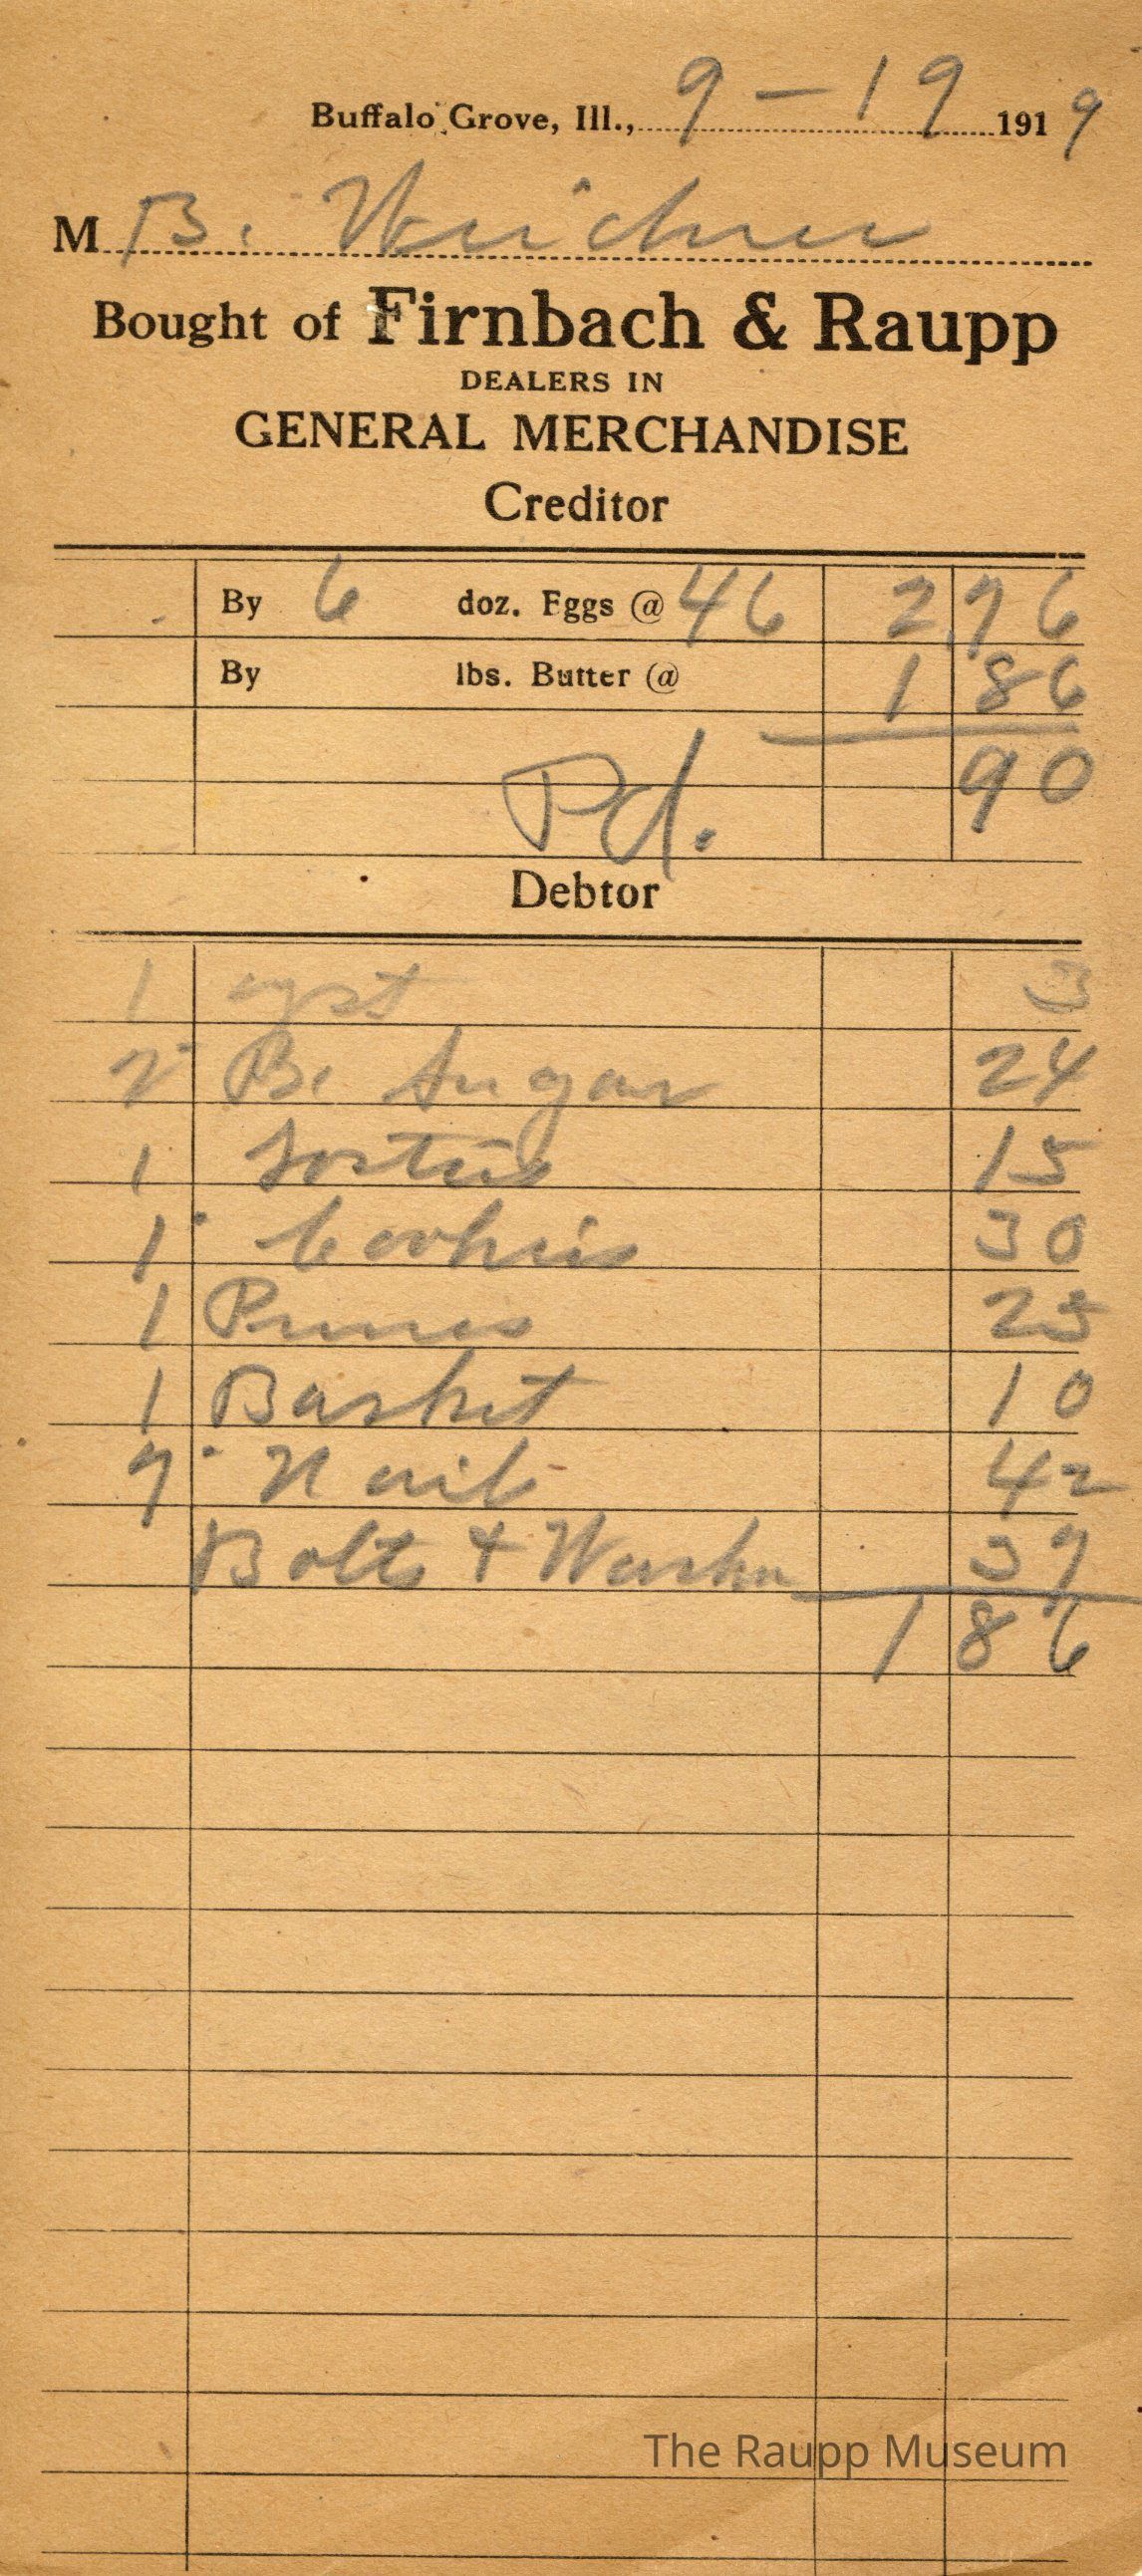 Buffalo Grove, Ill., 9-19 1919
M B. Weichner
Bought of Firnbach & Raupp
DEALERS IN
GENERAL MERCHANDISE
Creditor
By 6 doz. Eggs @ 46 2 76
By lbs. Butter @ 1 86
90
Pd.
Debtor
1 yst 3
2 Br Sugar 24
1 15
1 Cookies 30
1 Prunes 25
1 Basket 10
7 Nails 42
Bolts + Washer 37
1 86
The Raupp Museum